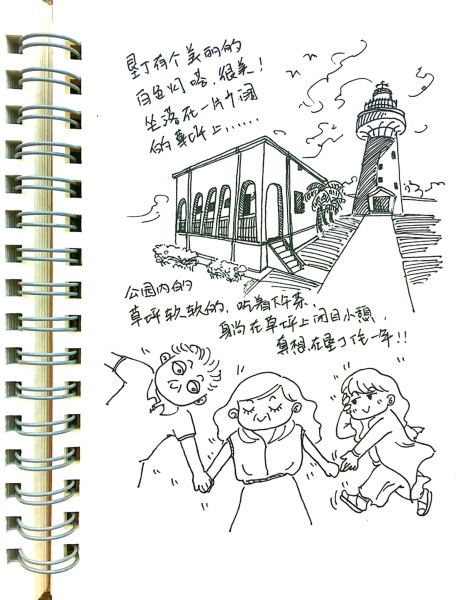 垦丁有个美丽的
白色灯塔，很美！
坐落在一片开阔
的草坪上......
公园内的
草坪软软的，吃着下午茶，
躺在草坪上闭目小憩，
真想在垦丁住一年！！